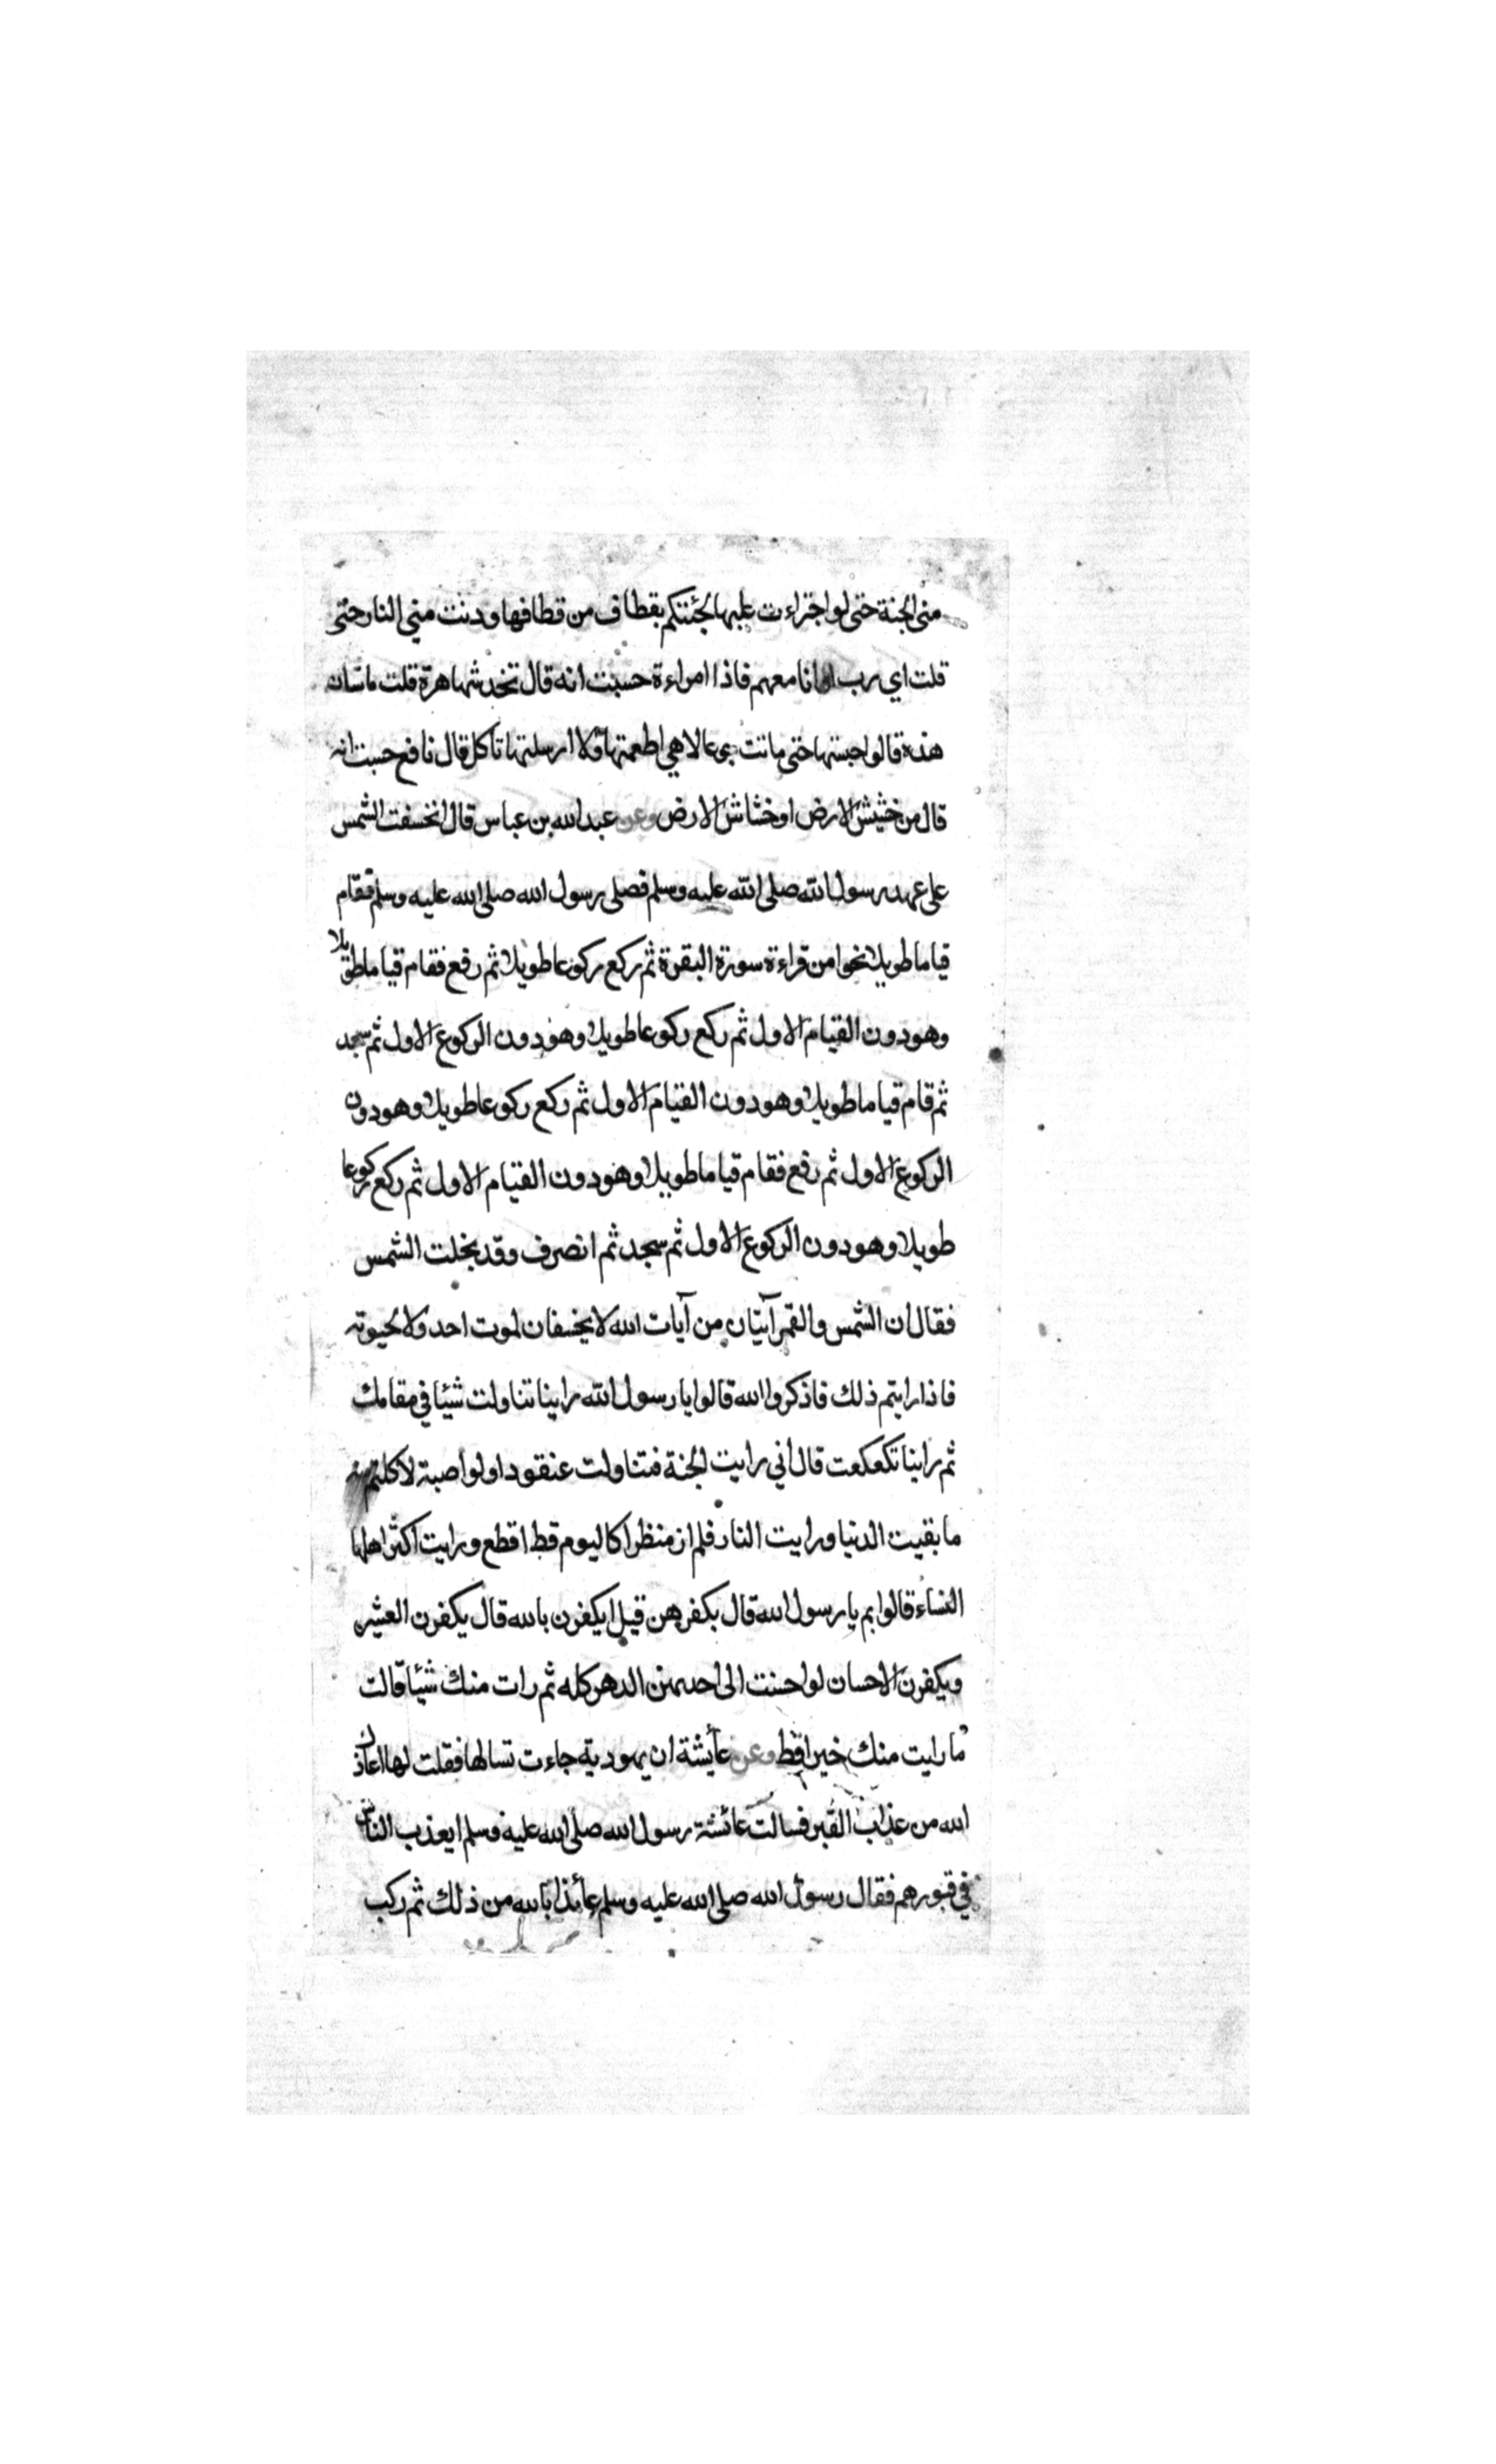 منى الجنة حتى لو اجتراءت عليها لجئتكم بقطاف من قطافها ودنت مني النار حتى
قلت اي رب وانا معهم فاذا امراءة حسبت انه قال تخدشها هرة قلت ما شان
هذه قالوا حبستها حتى ماتت جوعا لا هي اطعمتها ولا ارسلتها تاكل قال نافع حسبت انه
قال من خشيش الارض او خشاش الارض وعن عبد الله بن عباس قال انخسفت الشمس
على عهد رسول الله صلى الله عليه وسلم فصلى رسول الله صلى الله عليه وسلم فقام
قياما طويلا نحوا من قراءة سورة البقرة ثم ركع ركوعا طويلا ثم رفع فقام قياما طويلا
وهو دون القيام الاول ثم ركع ركوعا طويلا وهو دون الركوع الاول ثم سجد
ثم قام قياما طويلا وهو دون القيام الاول ثم ركع ركوعا طويلا وهو دون
الركوع الاول ثم رفع فقام قياما طويلا وهو دون القيام الاول ثم ركع ركوعا
طويلا وهو دون الركوع الاول ثم سجد ثم انصرف وقد تجلت الشمس
فقال ان الشمس والقمر آيتان من آيات الله لا يخسفان لموت احد ولا لحيوته
فاذا رايتم ذلك فاذكروا الله قالوا يا رسول الله رايناك تناولت شيئا في مقامك
ثم رايناك تكعكعت قال اني رايت الجنة فتناولت عنقودا ولو اصبته لاكلتم منه
ما بقيت الدنيا ورايت النار فلم ار منظرا كاليوم قط افظع ورايت اكثر اهلها
النساء قالوا بم يا رسول الله قال بكفرهن قيل ايكفرن بالله قال يكفرن العشير
ويكفرن الاحسان لو احسنت الى احديهن الدهر كله ثم رات منك شيئا قالت
ما رايت منك خيرا قط وعن عائشة ان يهودية جاءت تسالها فقلت لها اعاذك
الله من عذاب القبر فسالت عائشة رسول الله صلى الله عليه وسلم ايعذب الناس
في قبورهم فقال رسول الله صلى الله عليه وسلم عائذا بالله من ذلك ثم ركب